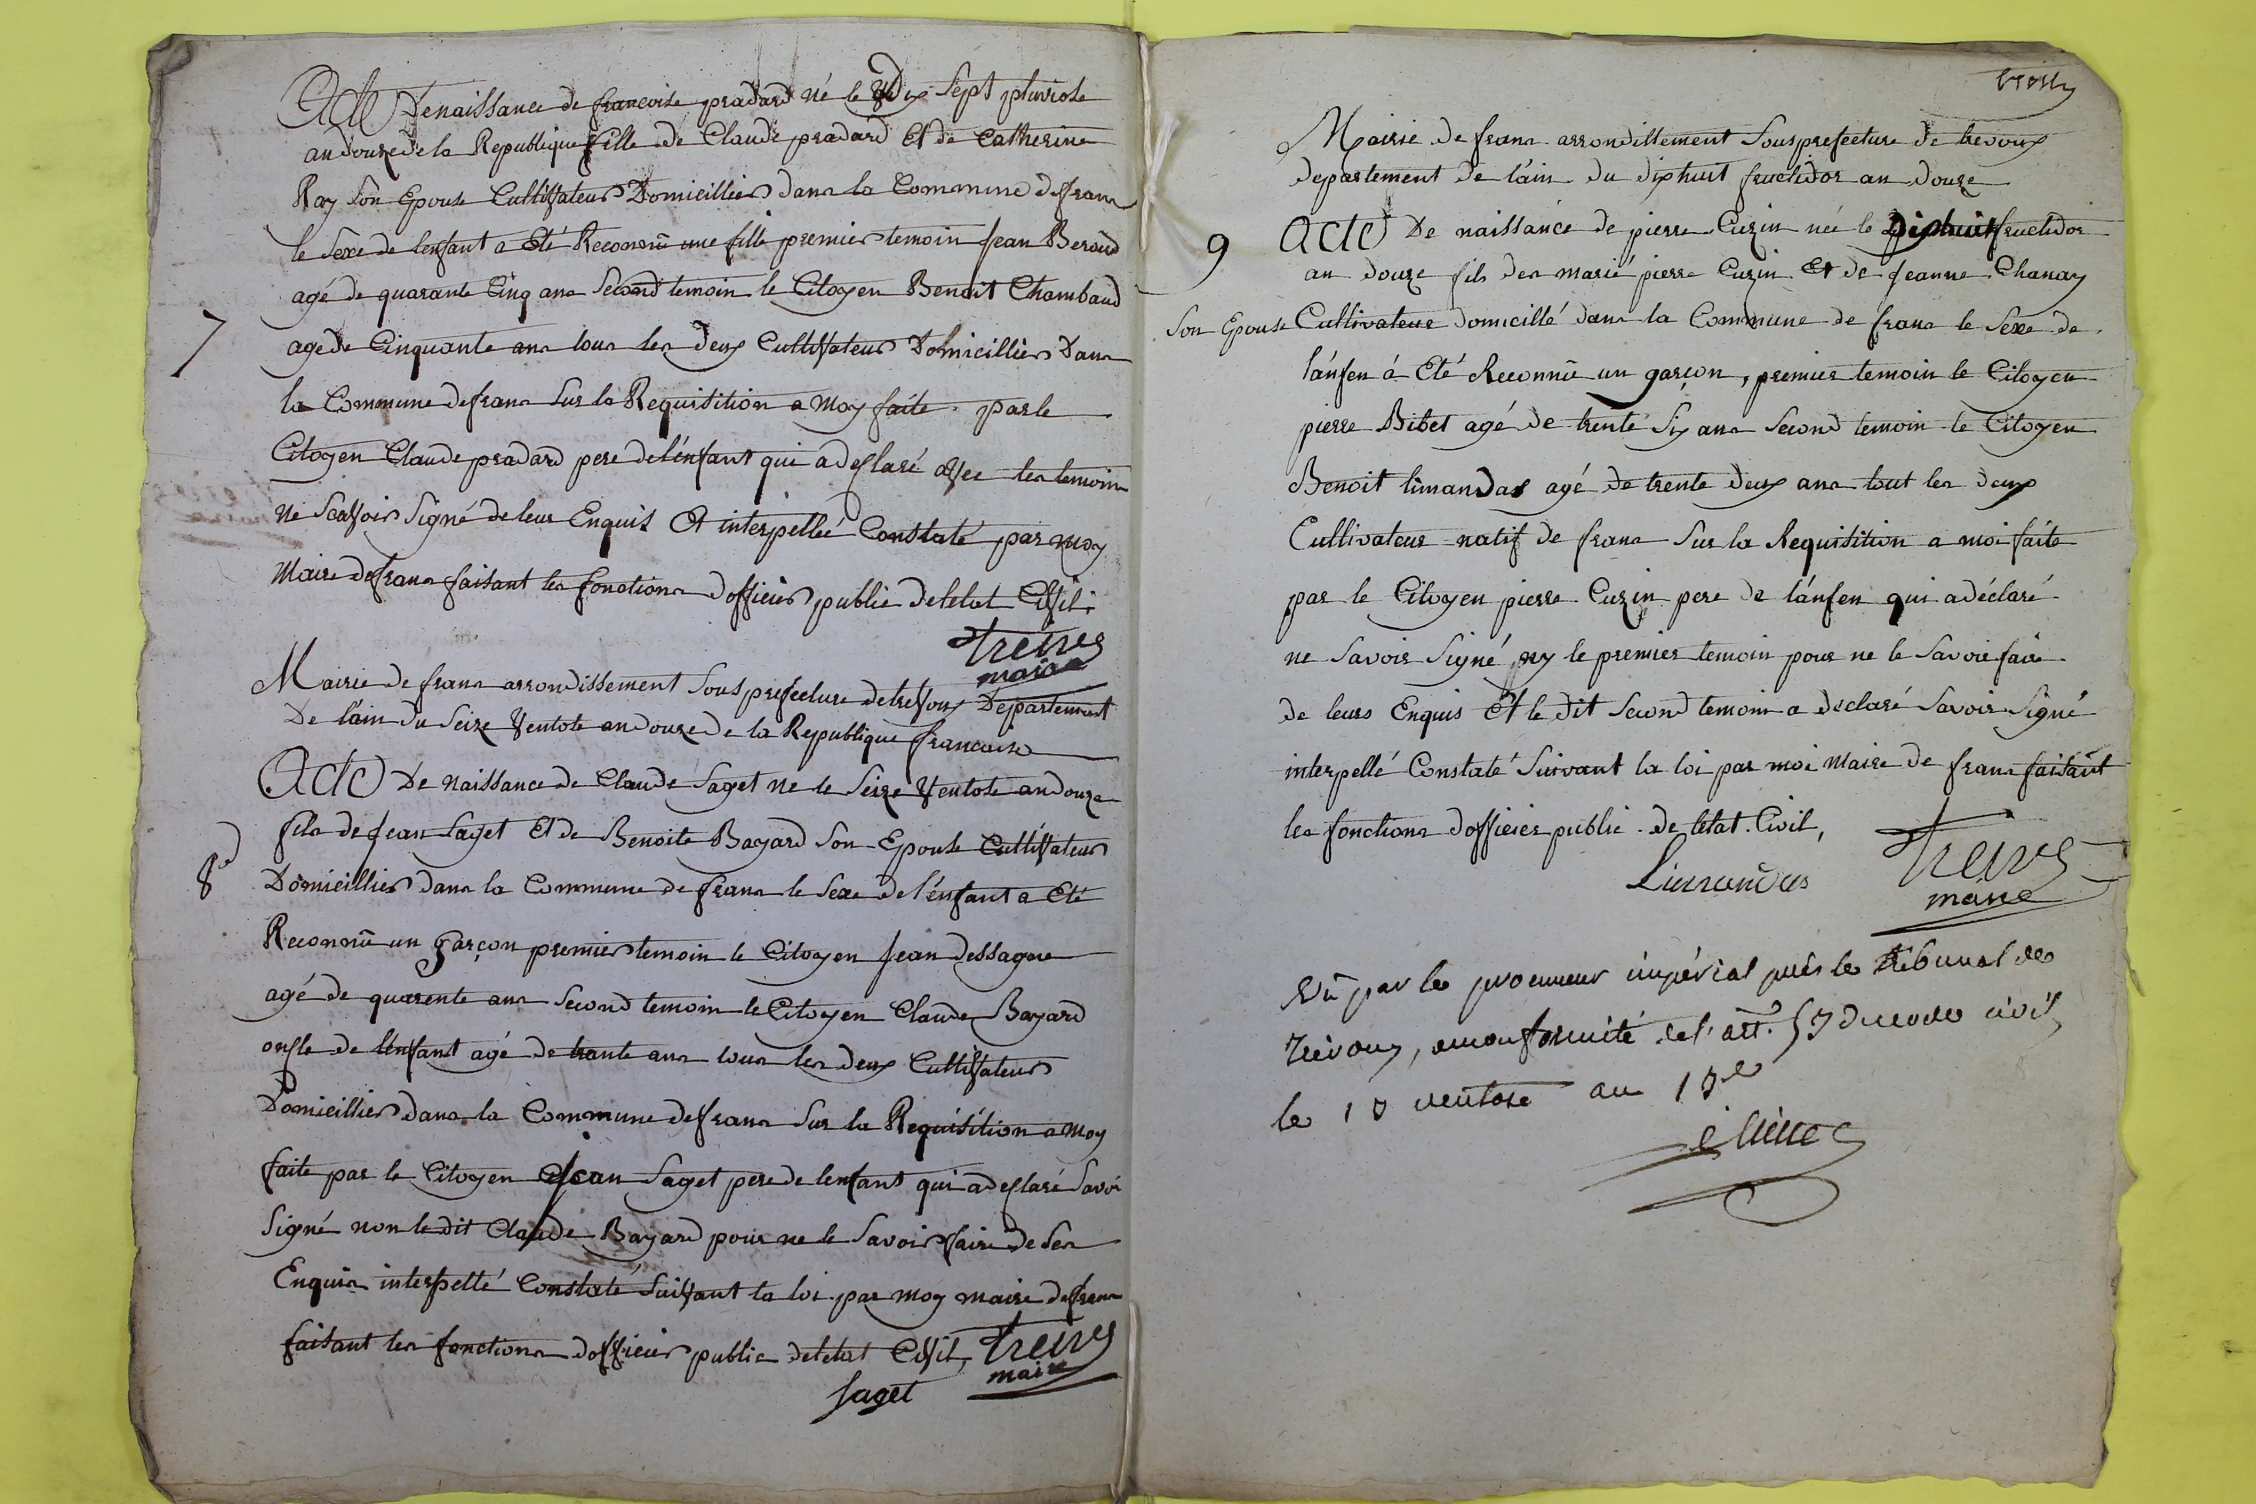 Acte Denaissance de francoise pradard né le dix Sept pluviose
an douze de la Republique fille de Claude pradard Et de Catherine
Ray Son Epouse Cultivateur Domicillier dans la Commune de frans
le Sexe de lenfant a Eté Reconnü une fille premier temoin Jean Beroud
agé de quarante Cinq ans Second temoin le Citoyen Benoit Chambaud
7
agé de Cinquante ans tous les deux Cultivateur Domicillier Dans
la Commune de frans Sur la Requisition a Moy faite par le
Citoyen Claude pradard pere de lénfant qui a desclaré avec les temoins
Ne Scavoir Signé de leur Enquis Et interpellée Constaté par moy
Maire de frans faisant les fonctions dofficier public de letat Civil.
Treives
maire
Mairie de frans arrondissement Sous prefecture de trevoux Departement
De l'ain du Seize Ventose an douze de la Republique francaise
Acte De Naissance de Claude Saget ne le Seize Ventose an douze
fils de Jean Saget Et de Benoite Bayard Son Epouse Cultivateur
8e
Domicillier dans la Commune de frans le Sexe de l'énfant a Eté
Reconnü un garçon premier temoin le Citoyen Jean Dessagne
agé de quarente ans Second temoin le Citoyen Claude Bayard
oncle de lénfant agé de trante ans tous les deux Cultivateur
Domicillier dans la Commune de frans Sur la Requisition a Moy
faite par le Citoyen Jean Saget pere de lenfant qui a desclaré Savoir
Signé non le dit Claude Bayard pour ne le Savoir faire de Ses
Enquis interpellé Constaté Suivant la loi par moy maire de frans
faisant les fonctions dofficier public de letat Civil, Treives
maire
Saget
trois
Mairie de frans arrondissement Sous prefecture de trevoux
departement de l'ain du diphuit fructidor an douze
9
Acte De naissance de pierre Cuzin née le Diphuit fructidor
an douze fils des marié pierre Cuzin Et de Jeanne Chanay
Son Epouse Cultivateur domicillé dans la Commune de frans le Sexe de
lánfen á Eté Reconnü un garçon, premier temoin le Citoyen
pierre Bibet agé de trente Six ans Second temoin le Citoyen
Benoit limandas agé de trente deux ans tout les deux
Cultivateur natif de frans Sur la Requisition a moi faite
par le Citoyen pierre Cuzin pere de lánfen qui a déclaré
ne Savoir Signé ny le premier temoin pour ne le Savoir faire
de leurs Enquis Et le dit Second temoin a declaré Savoir Signé
interpellé Constaté Suivant la loi par moi Maire de frans faisant
les fonctions dofficier public de letat Civil,
Limandas
Treives
maire
Vû par le procureur impérial près le tribunal de
Trévoux, en conformité de l'art. 53 du code civil,
le 10 ventose an 13e